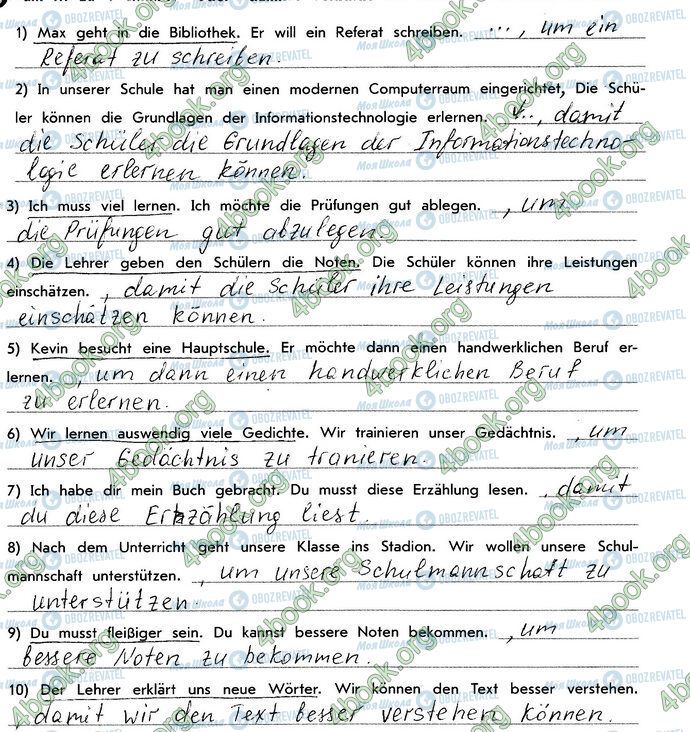 1) Max geht in die Bibliothek. Er will ein Referat schreiben. ..., um ein
Referat zu schreiben.
2) In unserer Schule hat man einen modernen Computerraum eingerichtet, Die Schü-
ler können die Grundlagen der Informationstechnologie erlernen. ..., damit
die Schüler die Grundlagen der Informationstechno-
logie erlernen können.
3) Ich muss viel lernen. Ich möchte die Prüfungen gut ablegen. , um
die Prüfungen gut abzulegen
4) Die Lehrer geben den Schülern die Noten. Die Schüler können ihre Leistungen
einschätzen. , damit die Schüler ihre Leistungen
einschätzen können.
5) Kevin besucht eine Hauptschule. Er möchte dann einen handwerklichen Beruf er-
lernen. , um dann einen handwerklichen Beruf
zu erlernen.
6) Wir lernen auswendig viele Gedichte. Wir trainieren unser Gedächtnis. , um
unser Gedächtnis zu tranieren.
7) Ich habe dir mein Buch gebracht. Du musst diese Erzählung lesen. , damit
du diese Erzählung liest.
8) Nach dem Unterricht geht unsere Klasse ins Stadion. Wir wollen unsere Schul-
mannschaft unterstützen. , um unsere Schulmannschaft zu
unterstützen.
9) Du musst fleißiger sein. Du kannst bessere Noten bekommen. , um
bessere Noten zu bekommen.
10) Der Lehrer erklärt uns neue Wörter. Wir können den Text besser verstehen.
, damit wir den Text besser verstehen können.